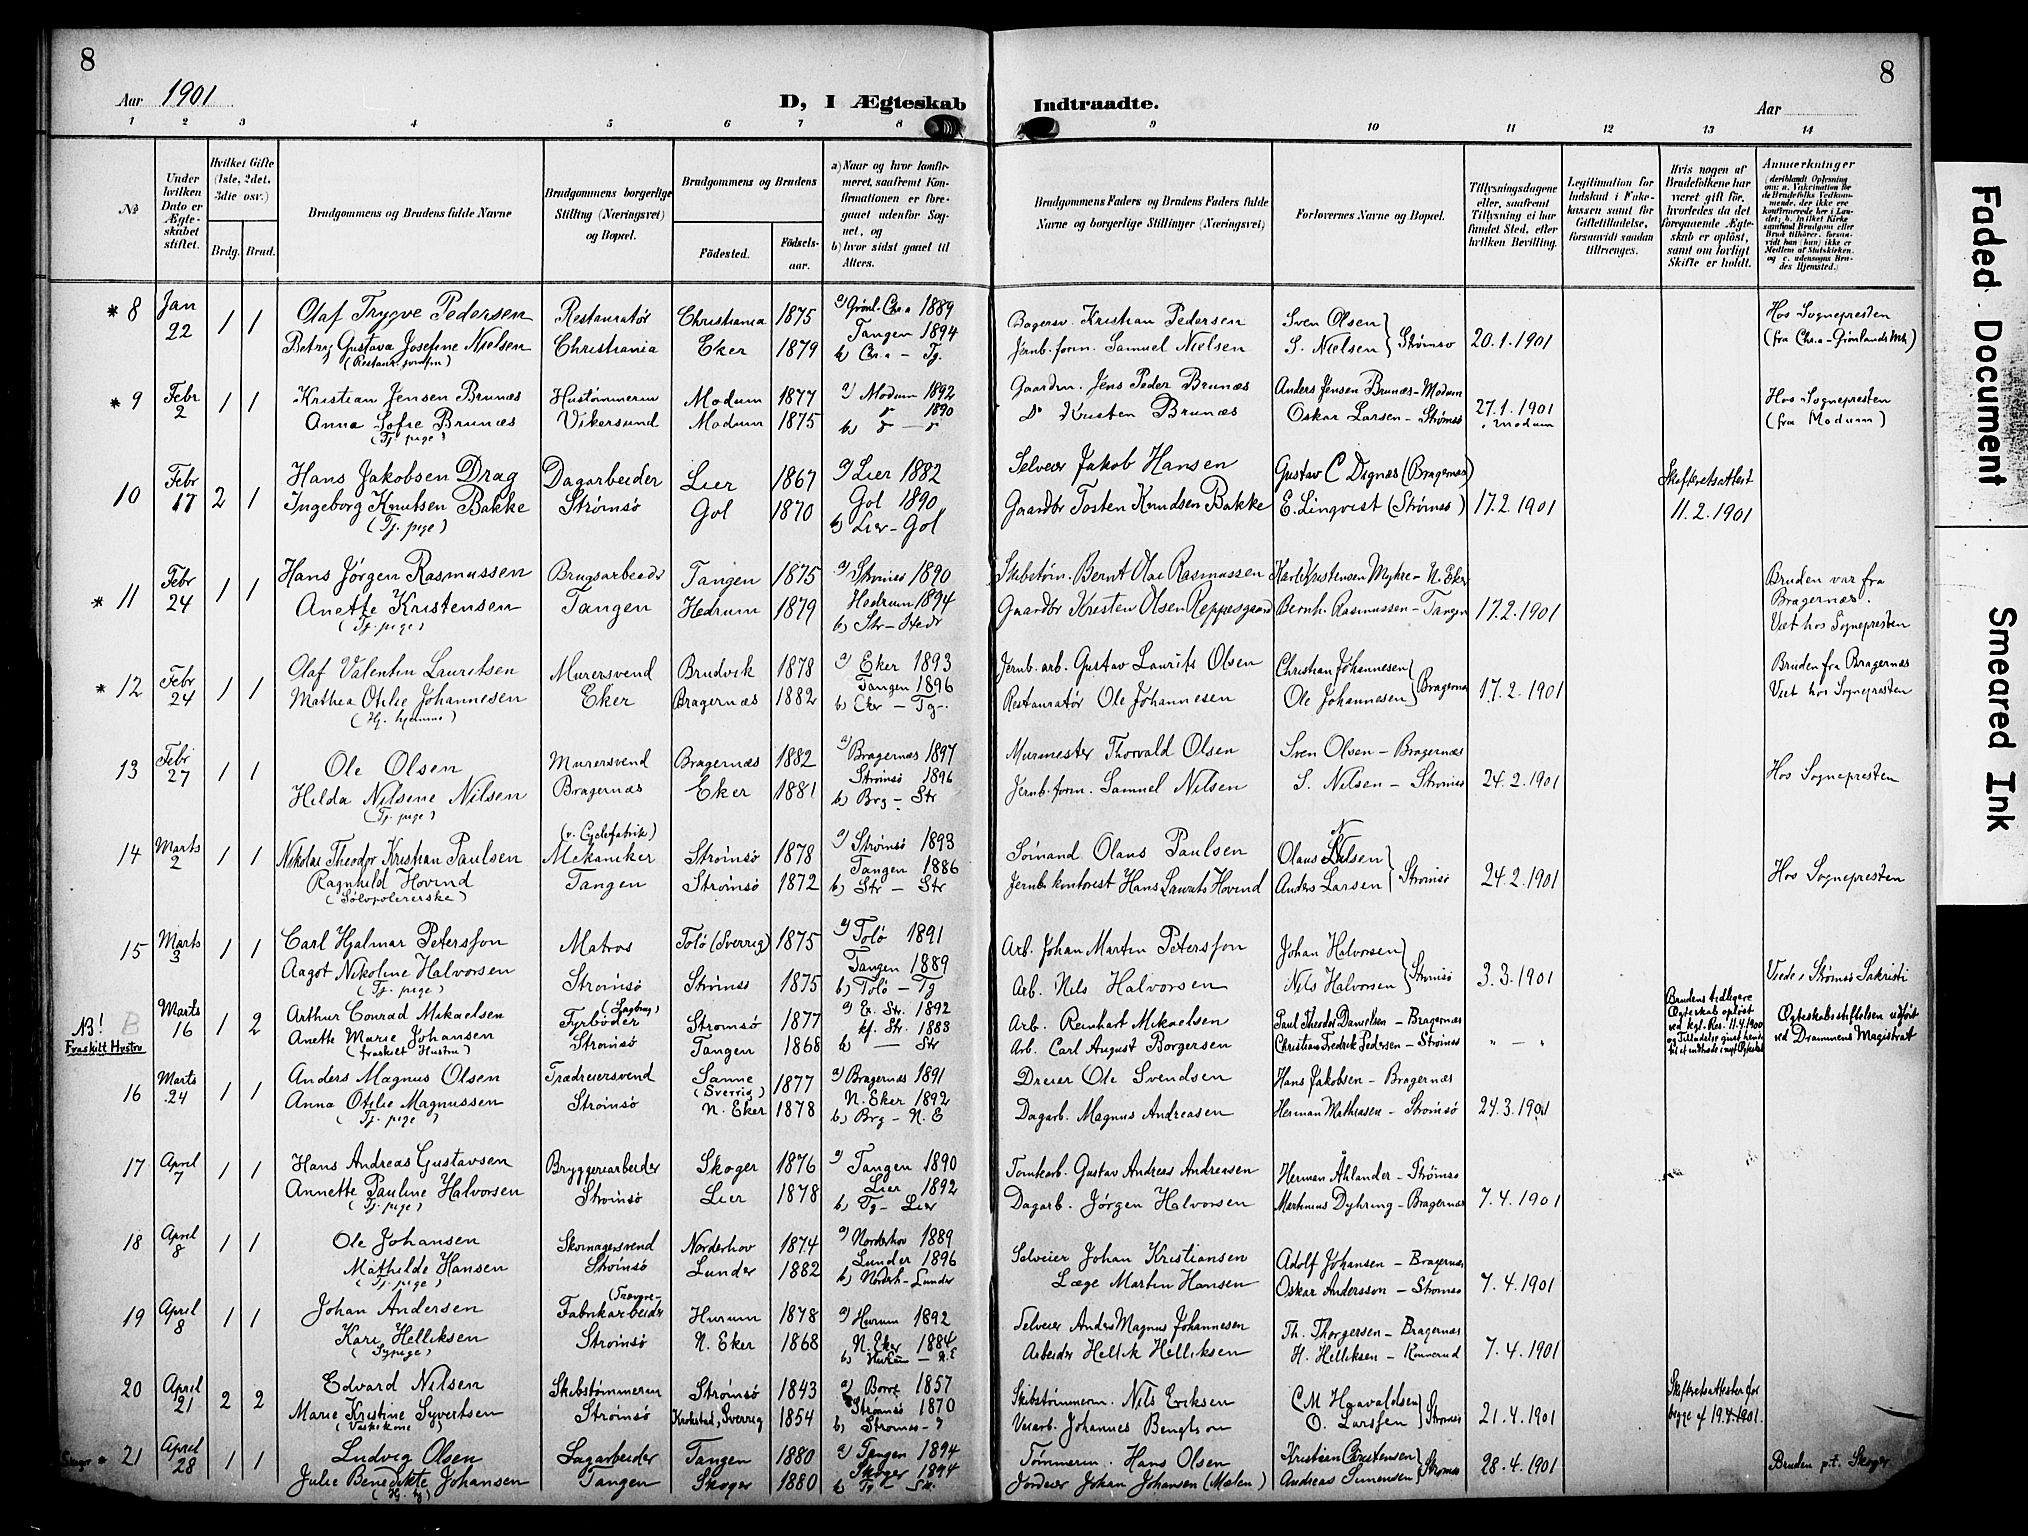 8
8
Aar 1901
D, I Ægteskab Indtraadte.
Aar
1 2 3 4 5 6 7 8 9 10 11 12 13 14
No.
Under hvilken Dato er Ægteskabet stiftet.
Hvilket Gifte (1ste, 2det, 3die osv.)
Brdg. Brud.
Brudgommens og Brudens fulde Navne
Brudgommens borgerlige Stilling (Næringsvei) og Bopæl.
Brudgommens og Brudens
Fødested. Fødselsaar.
a) Naar og hvor konfirmeret, saafremt Konfirmationen er foregaaet udenfor Sognet, og
b) hvor sidst gaaet til Alters.
Brudgommens Faders og Brudens Faders fulde Navne og borgerlige Stillinger (Næringsvei)
Forlovernes Navne og Bopæl.
Tillysningsdagene eller, saafremt Tillysning ei har fundet Sted, efter hvilken Bevilling.
Legitimation for Indskud i Enkekassen samt for Giftetilladelse, forsaavidt saadan tiltrænges.
Hvis nogen af Brudefolkene har været gift før, hvorledes da det foregaaende Ægteskab er opløst, samt om lovligt Skifte er holdt.
Anmærkninger
* 8 Jan 22 1 1 Olaf Trygve Pedersen Restauratør Christiania 1875 a) Grønl. Chr.a 1889 Bagersv. Kristian Pedersen Sven Olsen Hos Sognepresten
Betzy Gustava Josefine Nielsen Christiania Eker 1879 Tangen 1894 Jernb. form. Samuel Nielsen S. Nielsen } Strømsø 20.1.1901 (fra Chr.a - Grønlands Mh)
b) Chr.a - Tg.
* 9 Febr 2 1 1 Kristian Jensen Brunæs Hustømmerm Modum 1877 a) Modum 1892 Gaardm. Jens Peder Brunæs Anders Jensen Brunæs - Modum 27.1.1901 Hos Sognepresten
Anna Sofie Brunæs Vikersund Modum 1875 " 1890 Do Kristen Brunæs Oskar Larsen - Strømsø i Modum (fra Modum)
(Tj. pige)
10 Febr 17 2 1 Hans Jakobsen Drag Dagarbeider Lier 1867 a) Lier 1882 Selveier Jakob Hansen Gustav C Dignæs (Bragernæs) Skifteretsattest
Ingeborg Knutsen Bakke Strømsø Gol 1870 Gol 1890 Gaardbr Tosten Knudsen Bakke E. Linqvist (Strømsø) 17.2.1901 11.2.1901
(Tj. pige) b) Lier - Gol
* 11 Febr 24 1 1 Hans Jørgen Rasmussen Brugsarbeider Tangen 1875 a) Strømsø 1890 Skibstøm. Bernt Olai Rasmussen Karl Kristensen Myhre - N. Eker Bruden var fra Bragernæs.
Anette Kristensen Tangen Hedrum 1879 Hedrum 1894 Gaardbr Kristen Olsen Reppesgaard Bernh. Rasmussen - Tangen 17.2.1901 Viet hos Sognepresten
(Tj. pige) b) Str - Hedr
* 12 Febr 24 1 1 Olaf Valentin Lauritsen Murersvend Brudvik 1878 a) Eker 1893 Jernb. arb. Gustav Laurits Olsen Christian Johannesen Bruden fra Bragernæs
Mathea Otilie Johannesen Eker Bragernæs 1882 Tangen 1896 Restauratør Ole Johannesen Ole Johannesen } Bragernæs 17.2.1901 Viet hos Sognepresten
(Hj. hjemme) b) Eker - Tg.
13 Febr 27 1 1 Ole Olsen Murersvend Bragernæs 1882 a) Bragernæs 1897 Murmester Thorvald Olsen Sven Olsen - Bragernæs Hos Sognepresten
Helda Nilsene Nilsen Bragernæs Eker 1881 Strømsø 1896 Jernb. form. Samuel Nilsen S. Nilsen - Strømsø 24.2.1901
(Tj. pige) b) Brg - Str
14 Marts 2 1 1 Nikolai Theodor Kristian Paulsen (v. Cyclefabrik) Mekaniker Strømsø 1878 a) Strømsø 1893 Sømand Olaus Paulsen Olaus Nilsen Hos Sognepresten
Ragnhild Hovind Tangen Strømsø 1872 Tangen 1886 Jernb. kontorist Hans Laurits Hovind Anders Larsen } Strømsø 24.2.1901
(Sølvpolererske) b) Str - Str
15 Marts 3 1 1 Carl Hjalmar Petersson Matros Tolø (Sverrig) 1875 a) Tolø 1891 Arb. Johan Martin Petersson Johan Halvorsen
Aagot Nikoline Halvorsen Strømsø Strømsø 1875 Tangen 1889 Arb. Nils Halvorsen Nils Halvorsen } Strømsø 3.3.1901 Viede i Strømsø Sakristi
(Tj. pige) b) Tolø - Tg
NB! B Fraskilt Hustru Marts 16 1 2 Arthur Conrad Mikaelsen (Sagbrug) Fyrbøder Strømsø 1877 a) Str. 1892 Arb. Reinhart Mikaelsen Paul Theodor Danielsen - Bragernæs
Anette Marie Johansen Strømsø Tangen 1868 kf. Str. 1883 Arb. Carl August Borgersen Christian Fredrik Pedersen - Strømsø " - "
(fraskilt Hustru) b) - Str
Brudens tidligere Ægteskab opløst ved kgl. Res. 11.4.1900 og Tilladelse givet hende til at indtræde i nyt Ægteskab
Ægteskabsstiftelsen udført ved Drammens Magistrat
16 Marts 24 1 1 Anders Magnus Olsen Trædreiersvend Sanne (Sverrig) 1877 a) Bragernæs 1891 Dreier Ole Svendsen Hans Jakobsen - Bragernæs
Anna Otilie Magnussen Strømsø N. Eker 1878 N. Eker 1892 Dagarb. Magnus Andreasen Herman Mathiasen - Strømsø 24.3.1901
(Tj. pige) b) Brg - N. E
17 April 7 1 1 Hans Andreas Gustavsen Bryggeriarbeider Skoger 1876 a) Tangen 1890 Tomtearb. Gustav Andreas Andreasen Herman Åhlander - Strømsø
Annette Pauline Halvorsen Strømsø Lier 1878 Lier 1892 Dagarb. Jørgen Halvorsen Martinius Dyhring - Bragernæs 7.4.1901
(Tj. pige) b) Tg - Lier
18 April 8 1 1 Ole Johansen Skomagersvend Norderhov 1874 a) Norderhov 1889 Selveier Johan Kristiansen Adolf Johansen - Bragernæs
Mathilde Hansen Strømsø Lunder 1882 Lunder 1896 Læge Martin Hansen Oskar Andersson - Strømsø 7.4.1901
(Tj. pige) b) Norderh - Lunder
19 April 8 1 1 Johan Andersen Fabrikarbeider Hurum 1878 a) Hurum 1892 Selveier Anders Magnus Johannesen Th. Thorgersen - Bragernæs
Kari Helliksen Strømsø N. Eker 1868 N. Eker 1884 Arbeider Hellik Helliksen H. Helliksen - Konnerud 7.4.1901
(Sypige) b) Hurum - N. E
20 April 21 2 2 Edvard Nilsen Skibstømmerm Strømsø 1843 a) Borre 1857 Skibstømmerm. Nils Eriksen C M Haavaldsen Skifteretsattester for
Marie Kristine Syvertsen Strømsø Karlstad, Sverrig 1854 Strømsø 1870 Johannes Bengtson O. Larssen } Strømsø 21.4.1901 begge af 19.4.1901.
(Vaskekone) b) Strømsø - ?
Skoger * 21 April 28 1 1 Ludvig Olsen Sagarbeider Tangen 1880 a) Tangen 1894 Tømmerm. Hans Olsen Kristian Christensen
Julie Benedikte Johansen Tangen Skoger 1880 Skoger 1894 Jordeier Johan Johansen (Mælen) Andreas Simensen } Strømsø 28.4.1901 Bruden p.t. Skoger
b) Tg - Sk.
Faded Document
Smeared Ink